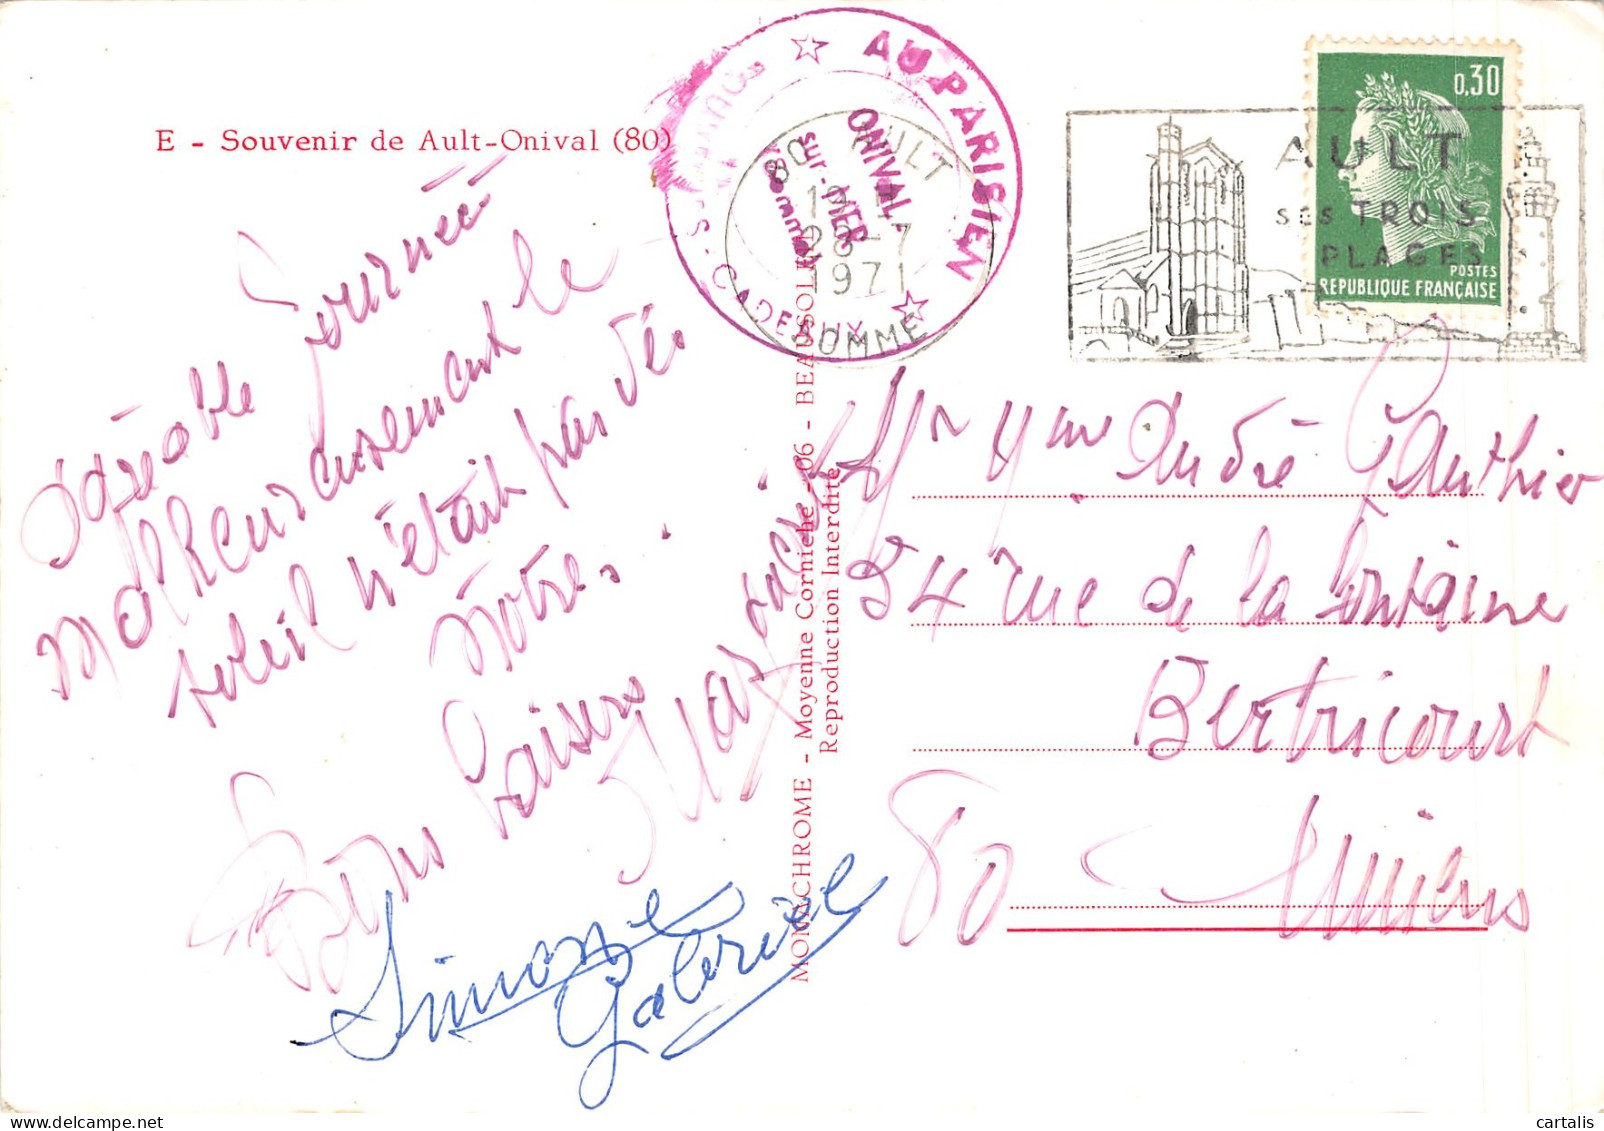 E - Souvenir de Ault-Onival (80)
agréable Journée
Malheureusement le
soleil n'était pas des
notres.
Bons baisers
Simone
Galerie
SOUVENIRS - CADEAUX ☆ AU PARISIEN ☆
ONIVAL
sur-MER
(Somme)
80 AULT
28-7
1971
SOMME
AULT
SES TROIS
PLAGES
0,30
POSTES
REPUBLIQUE FRANÇAISE
MONACHROME - Moyenne Corniche - 06 - BEAUSOLEIL
Reproduction Interdite
Mr Mme André Gauthier
54 rue de la Fontaine
Bertricourt
80 Amiens
cartalis
delcampe.net